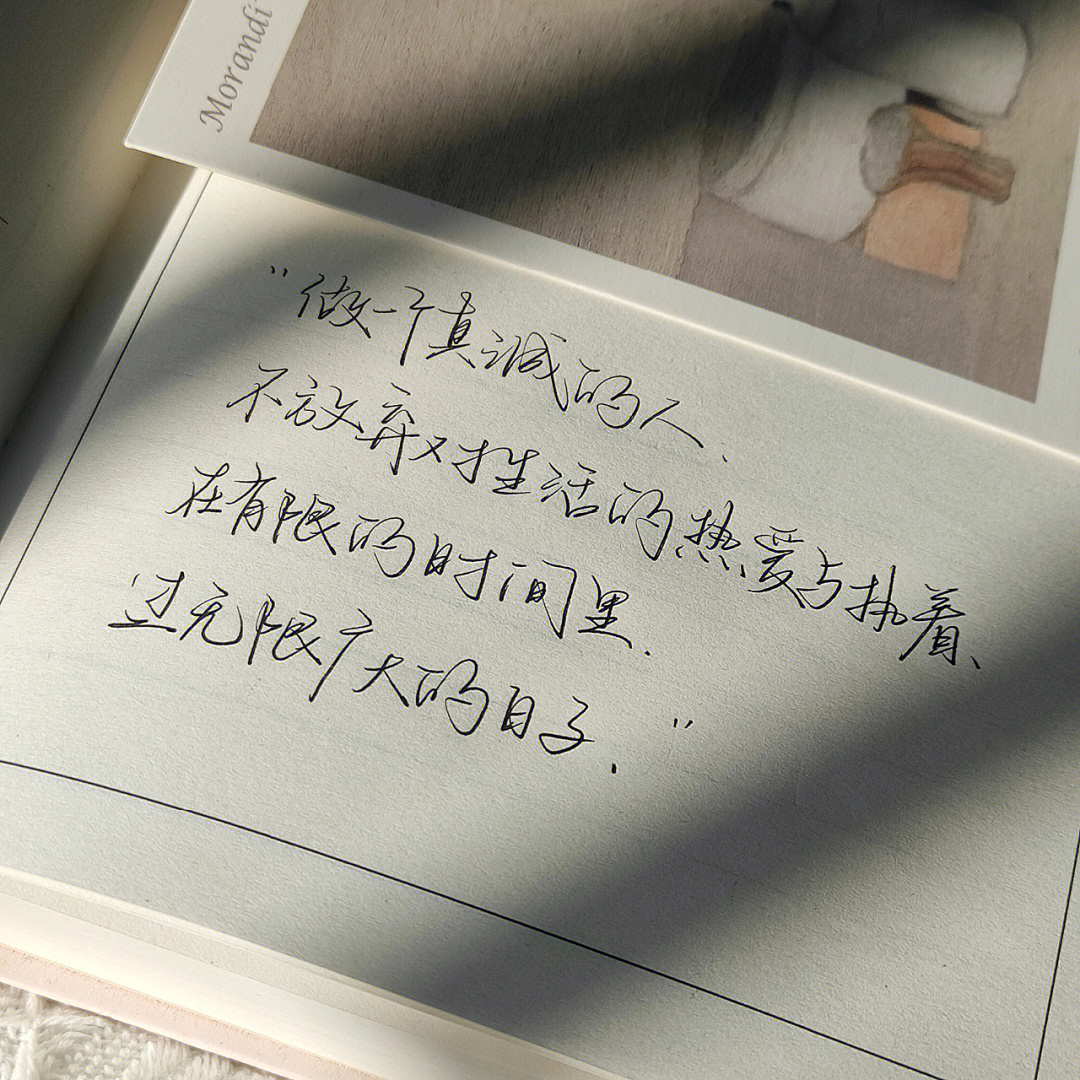 Morandi
"做一个真诚的人.
不放弃对生活的热爱与执着、
在有限的时间里.
过无限广大的日子."